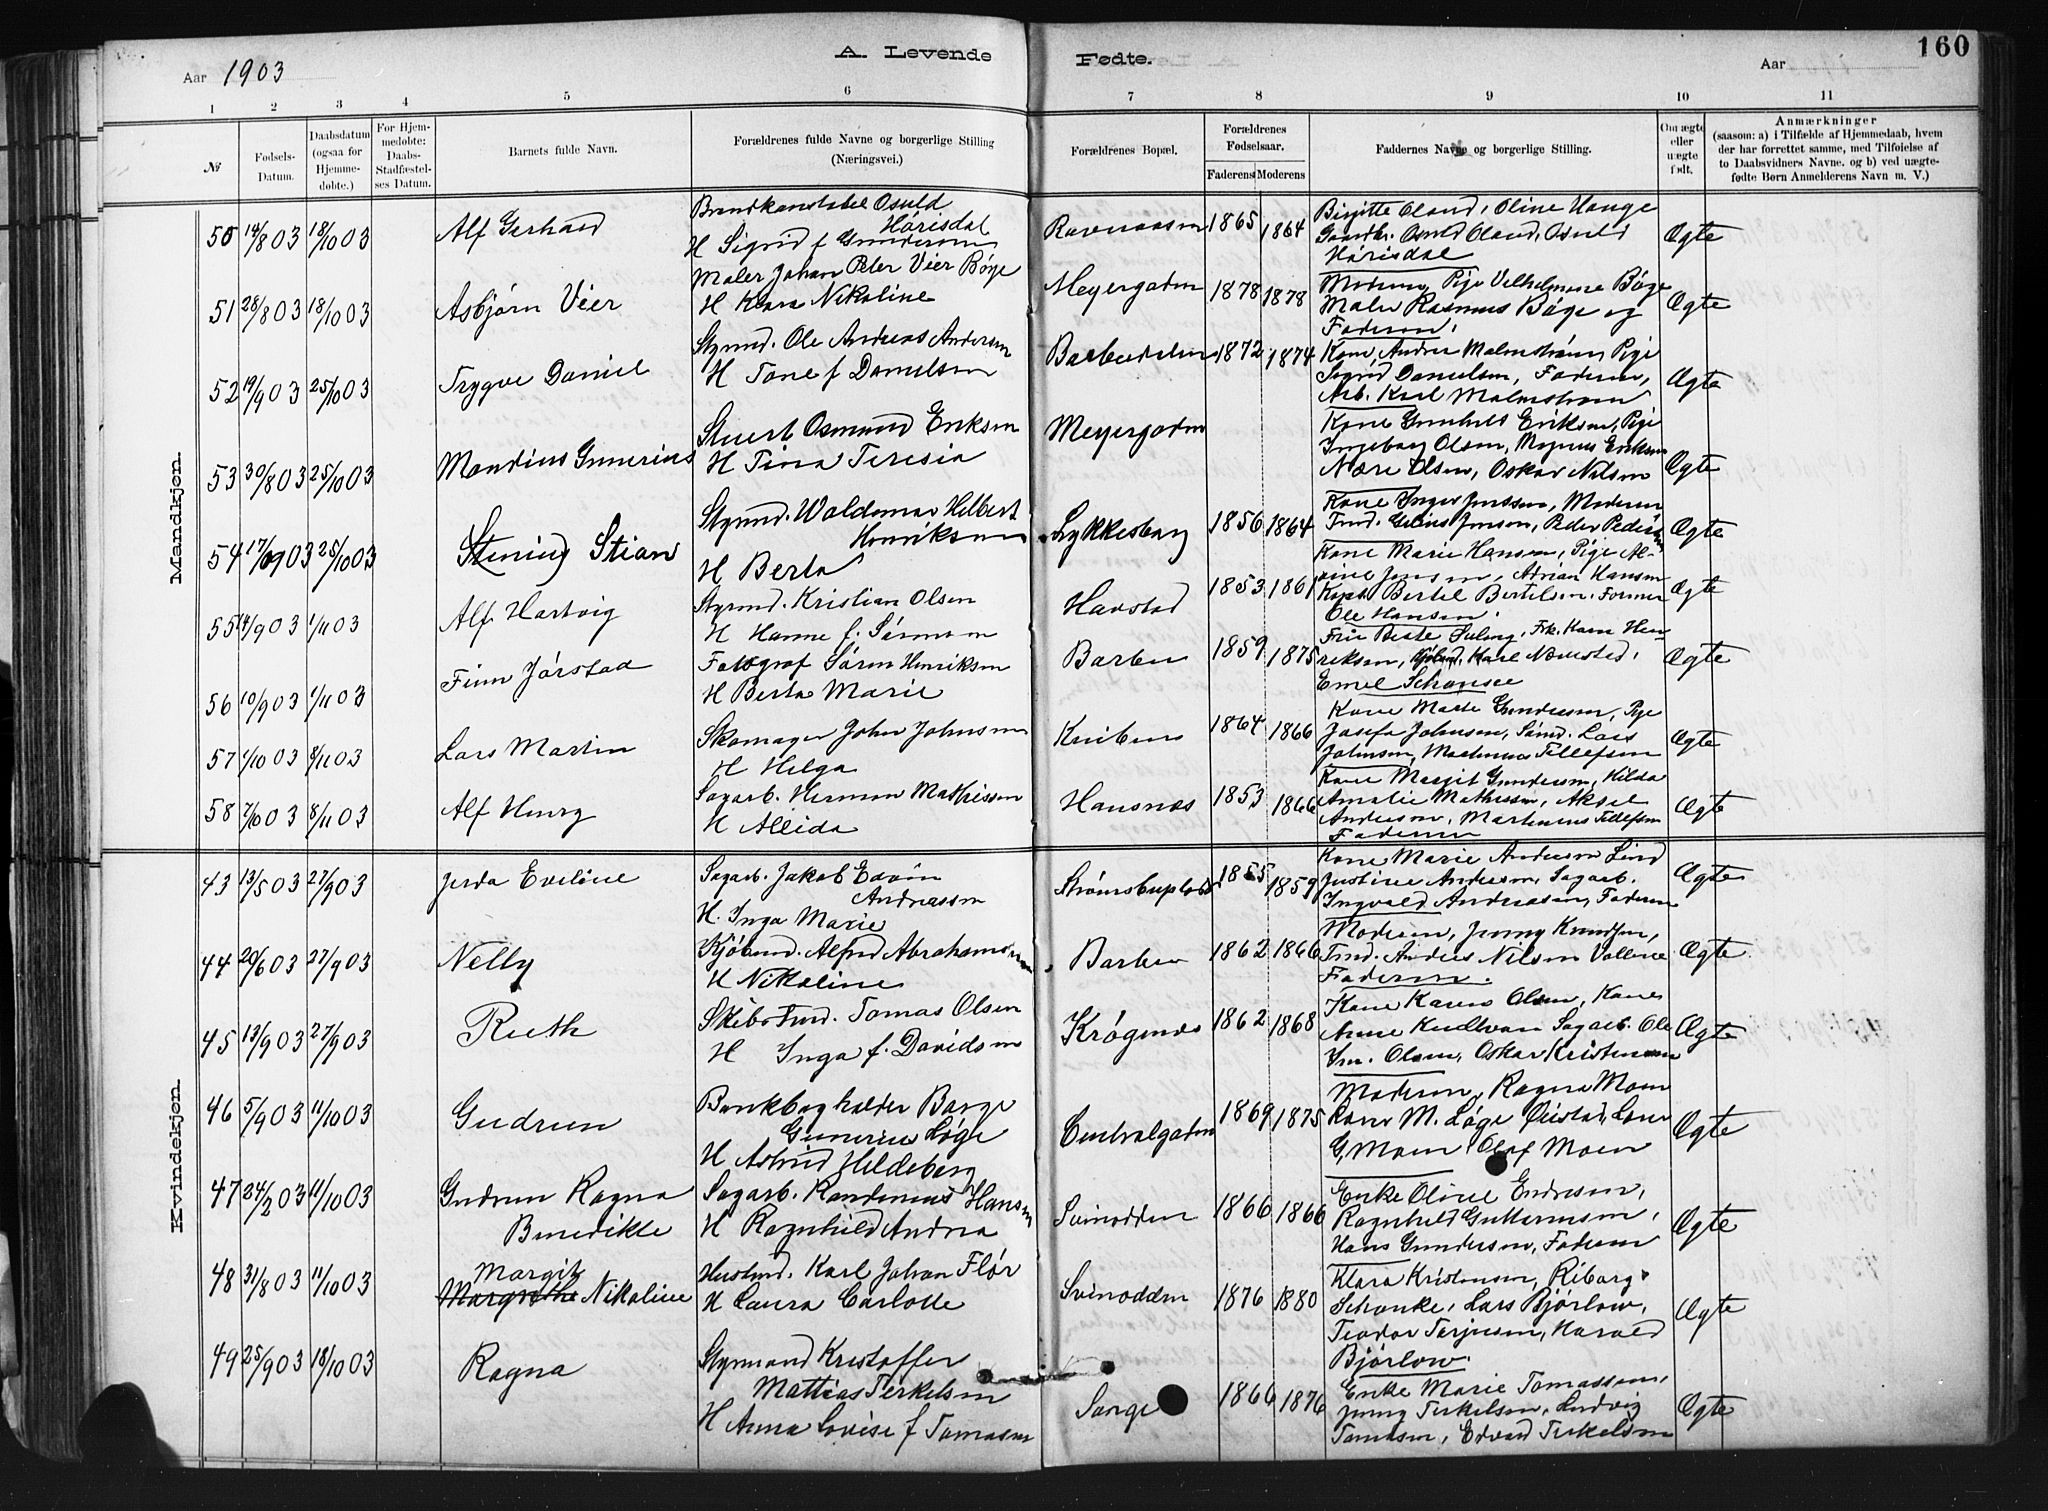 A. Levende Fødte.
160
Aar 1903
Aar
1 2 3 4 5 6 7 8 9 10 11
№
Fødsels-Datum.
Daabsdatum (ogsaa for Hjemme-døbte.)
For Hjem-medøbte: Daabs-Stadfæstel-ses Datum.
Barnets fulde Navn.
Forældrenes fulde Navne og borgerlige Stilling (Næringsvei.)
Forældrenes Bopæl.
Forældrenes Fødselsaar.
Faderens Moderens
Faddernes Navne og borgerlige Stilling.
Om ægte eller uægte født.
Anmærkninger
(saasom: a) i Tilfælde af Hjemmedaab, hvem
der har forrettet samme, med Tilføielse af
to Daabsvidners Navne. og b) ved uægte-
fødte Børn Anmelderens Navn m. V.)
Mandkjøn.
50 14/8 03 18/10 03 Alf Gerhard
Brandkonstabel Osuld Hørisdal
H Sigrid f Gundersen
1865 1864
Birgitte Oland, Oline Hauge
Gaardbr. Osuld Oland, Osuld
Hørisdal
Ægte
51 28/8 03 18/10 03 Asbjørn Vier
Maler Johan Peter Vier Bøge
H Klara Nikoline
Meyergaden 1878 1878
Moderen, Pige Vilhelmine Bøge
Maler Rasmus Bøge og
Faderen.
Ægte
52 19/9 03 25/10 03 Trygve Daniel
Styrmd. Ole Andreas Andersen
H Tone f Danielsen
Barbudalen 1872 1874
Kone Andrea Malmstrøm, Pige
Sigrid Danielsen, Faderen,
Arb. Karl Malmstrøm
Ægte
53 30/8 03 25/10 03 Mandius Gunerius
Stuert Osmund Eriksen
H Tina Teresia
Meyergaden
Kone Gunhild Eriksen, Pige
Ingeborg Olsen, Magnus Eriksen
Nære Olsen, Oskar Nilsen
Ægte
54 17/9 03 25/10 03 Stening Stian
Styrmd. Waldemar Helbert Henriksen
H Berta
Lykkesborg 1856 1864
Kone Inger Jenssen, Moderen
Tmd. Jensen, Peder Pedersen
Ægte
55 14/9 03 1/11 03 Alf Hartvig
Styrmd. Kristian Olsen
H Hanne f. Sørensen
Havstad 1853 1861
Kone Marie Hansen, Pige Al-
vine Jensen, Adrian Hansen
Kapt. Bertel Bertelsen. Former
Ole Hansen.
Ægte
56 10/9 03 1/11 03 Finn Jørstad
Fotograf Søren Henriksen
H Berta Marie
Barbu 1859 1875
Fru Beate Suling. Frk. Kara Hen-
riksen, Karl Næmsted,
Emil Schanche
Ægte
57 1/10 03 8/11 03 Lars Martin
Skomager John Johnsen
H Helga
Kniben 1864 1866
Kone Marte Gundersen, Pige
Josefa Johnsen, Sømd. Lars
Johnsen, Martinus Tellefsen
Ægte
58 7/10 03 8/11 03 Alf Henry
Sagarb. Herman Mathissen
H Allida
Hansnæs 1853 1866
Kone Margit Gundersen, Hilda
Amalie Mathissen, Aksel
Andersen, Martinius Tellefsen
Faderen
Ægte
Kvindekjøn.
43 13/5 03 27/9 03 Jerda Eveline
Sagarb. Jakob Edvin Andreassen
H. Inga Marie
Strømsbuplads 1855 1859
Kone Marie Andersen Lind
Justine Andersen, Sagarb.
Ingvald Andreasen, Faderen
Ægte
44 20/6 03 27/9 03 Nelly
Kjøbmd. Alfred Abrahamsen
H Nikoline
Barbu 1862 1866
Moderen, Jenny Knudsen,
Tmd. Anders Nilsen Vollene
Faderen.
Ægte
45 13/9 03 27/9 03 Ruth
Skibstmd. Tomas Olsen
H Inga f. Davidsen
Krøgenes 1862 1868
Kone Karen Olsen, Kone
Anne Sagarb. Ole
Olsen, Oskar Kristensen
Ægte
46 5/9 03 11/10 03 Gudrun
Bankbogholder Børge Gunerius Løge
H Astrid Hildeborg
Centralgaden 1869 1875
Moderen, Ragna Moen
M. Løge
G, Moen Olaf Moen
Ægte
47 24/2 03 11/10 03 Gudrun Ragna Benedikte
Sagarb. Randinius Hansen
H Ragnhild Andrea
Svinodden 1866 1866
Enke Oline Endresen,
Ragnhild Guttormsen,
Hans Gundersen, Faderen
Ægte
48 31/8 03 11/10 03 Margit
Margrethe Nikoline
Karl Johan Flør
H Laura Carlotte
Svinodden 1876 1880
Klara Kristensen, Riborg
Schanke, Lars Bjørlow,
Teodor Terjesen, Harald
Bjørlow.
Ægte
49 25/9 03 18/10 03 Ragna
Styrmand Kristoffer
Mattias Terkelsen
H Anna Lovise f Tomasen
Songe 1866 1876
Enke Marie Tomassen,
Jenny Terkelsen, Ludvig
Tomasen, Edvard Terkelsen
Ægte